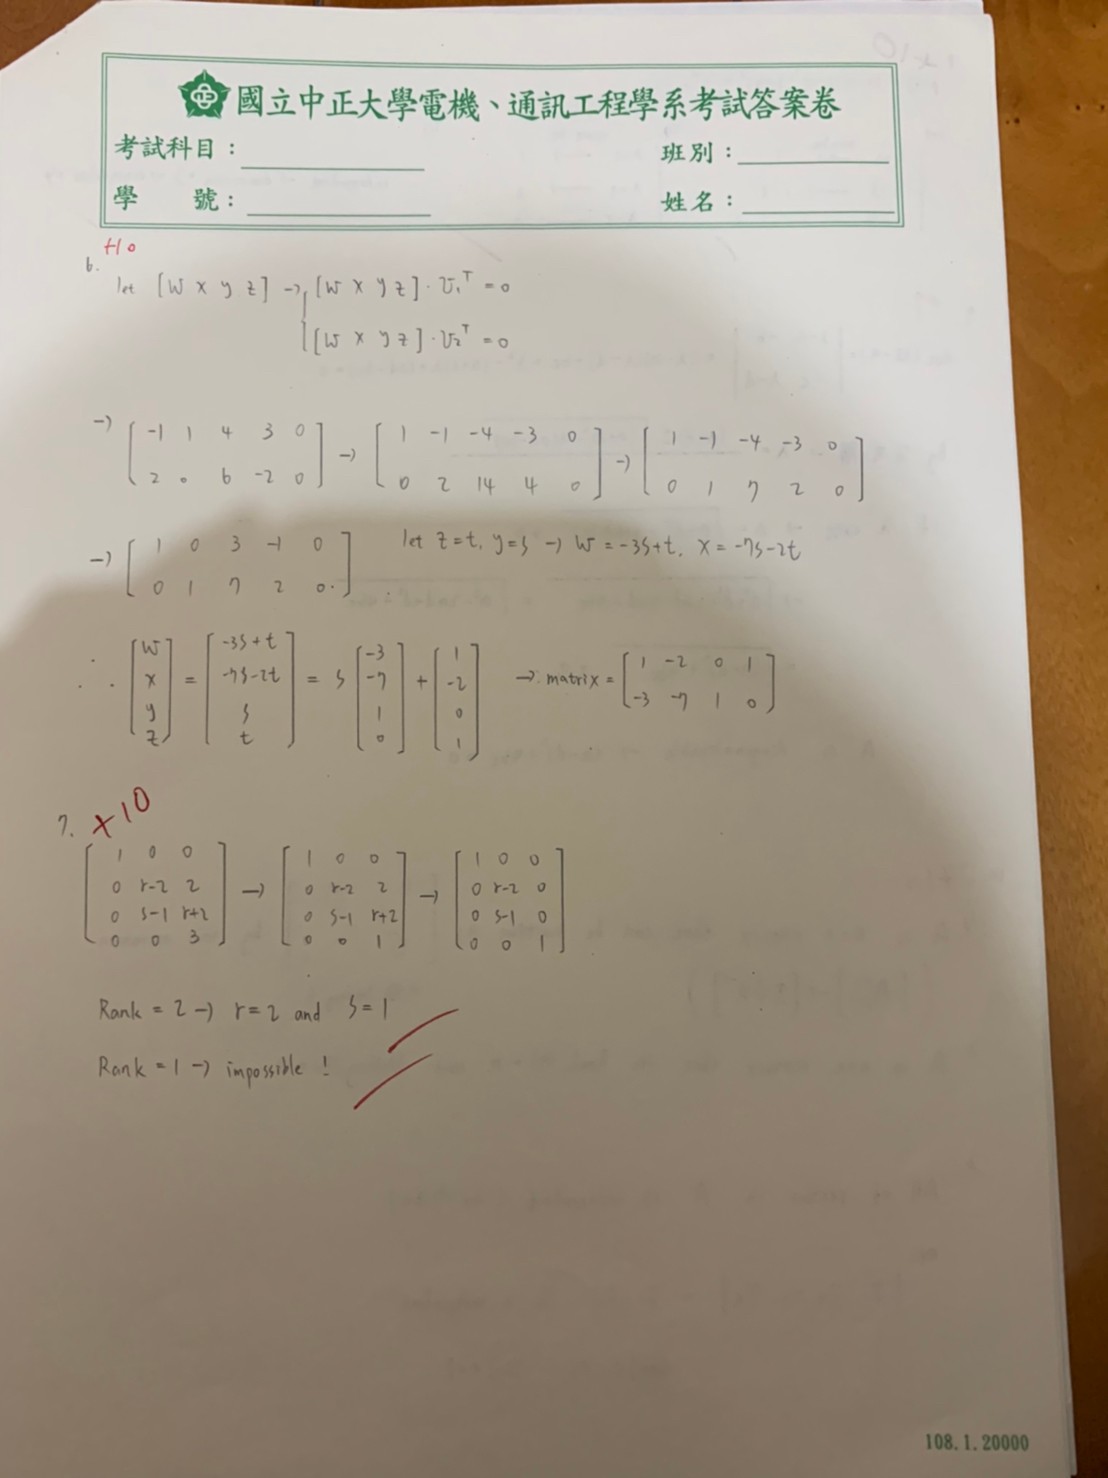 國立中正大學電機、通訊工程學系考試答案卷
考試科目：
班別：
學 號：
姓名：
+10
6.
let [w x y z] → { [w x y z]·v₁ᵀ = 0
[w x y z]·v₂ᵀ = 0
→ [-1 1 4 3 0; 2 0 6 -2 0] → [1 -1 -4 -3 0; 0 2 14 4 0] → [1 -1 -4 -3 0; 0 1 7 2 0]
→ [1 0 3 -1 0; 0 1 7 2 0] let z=t, y=s → w=-3s+t, x=-7s-2t
∴ [w; x; y; z] = [-3s+t; -7s-2t; s; t] = s [-3; -7; 1; 0] + [1; -2; 0; 1] → matrix = [1 -2 0 1; -3 -7 1 0]
7. +10
[1 0 0; 0 r-2 2; 0 s-1 r+2; 0 0 3] → [1 0 0; 0 r-2 2; 0 s-1 r+2; 0 0 1] → [1 0 0; 0 r-2 0; 0 s-1 0; 0 0 1]
Rank = 2 → r=2 and s=1
Rank = 1 → impossible !
108.1.20000